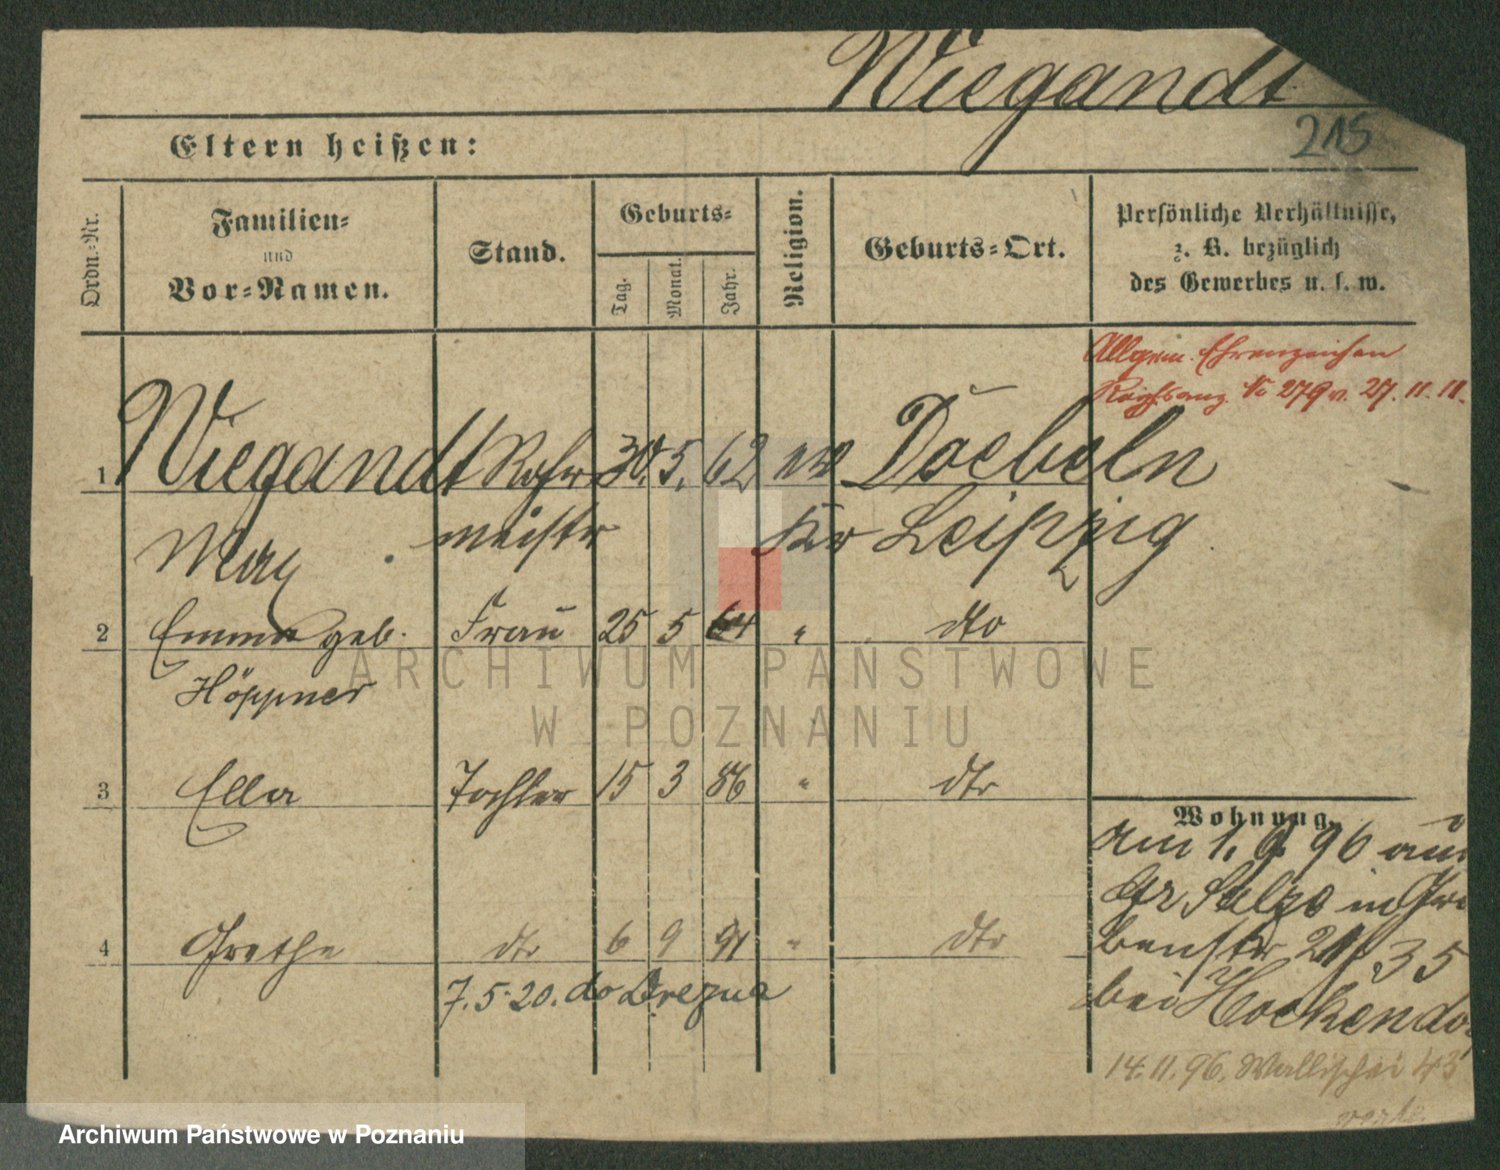 Wiegandt
215
Eltern heißen:
Ordn.-Nr.
Familien-
und
Vor-Namen.
Stand.
Geburts-
Tag.
Monat.
Jahr.
Religion.
Geburts-Ort.
Persönliche Verhältnisse,
z. B. bezüglich
des Gewerbes u. s. w.
Allgem. Ehrenzeichen
Reichsanz. No 279 v. 27. 11. 11.
1 Wiegandt Rohr 30. 5. 62 ev Doebeln
Max meister Kr Leipzig
2 Emma geb. Frau 25 5 64 " dto
Höppner
ARCHIWUM PAŃSTWOWE
W POZNANIU
3 Ella Tochter 15 3 86 " dto
Wohnung.
am 1. 9 96 aus
Gr Salze in Gra
benstr 35
bei Hockendo
4 Grethe dto 6 9 91 " dto
7. 5. 20. do Drezna
14. 11. 96. Wallischei 43
Archiwum Państwowe w Poznaniu